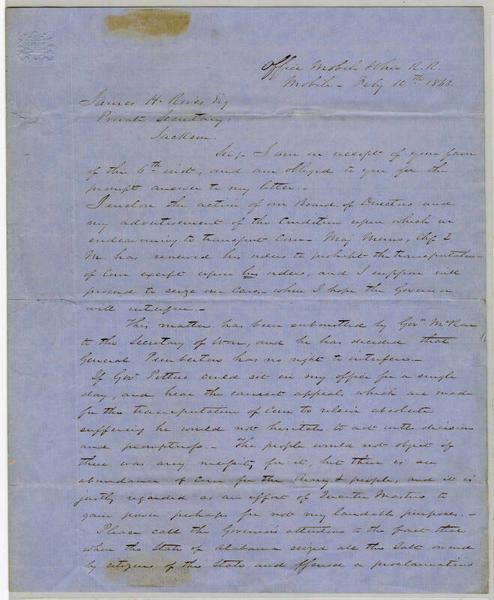 Office Mobile & Ohio R.R.
Mobile - Feby 10th 186
James H. Rives Esq
Private Secretary,
Jackson.
Sir, I am in receipt of your favor
of the 6th inst, and am obliged to you for the
prompt answer to my letter.
I enclose the action of our Board of Directors and
my advertisement of the Conditions upon which we
endeavoring to transport Corn. Maj Mims, Chf 2
M has renewed his orders to prohibit the transportation
of Corn except upon his orders, and I suppose will
proceed to seize our Cars, when I hope the Governor
will interfere. -
This matter has been submitted by Genl McRae
to the Secretary of War, and he has decided that
General Pemberton has no right to interfere -
If Gov Pettus could sit in my office for a single
day, and hear the earnest appeals which are made
for the transportation of Corn to relieve absolute
suffering he would not hesitate to act with decision
and promptness - The people would not object if
there was any necessity for it, but there is an
abundance of Corn for the Army & people, and it is
justly regarded as an effort of Quarter Masters to
gain power perhaps for not very laudable purposes. -
Please call the Governor's attention to the fact that
when the State of Alabama seized all the Salt owned
by citizens of this State and offered a proclamation